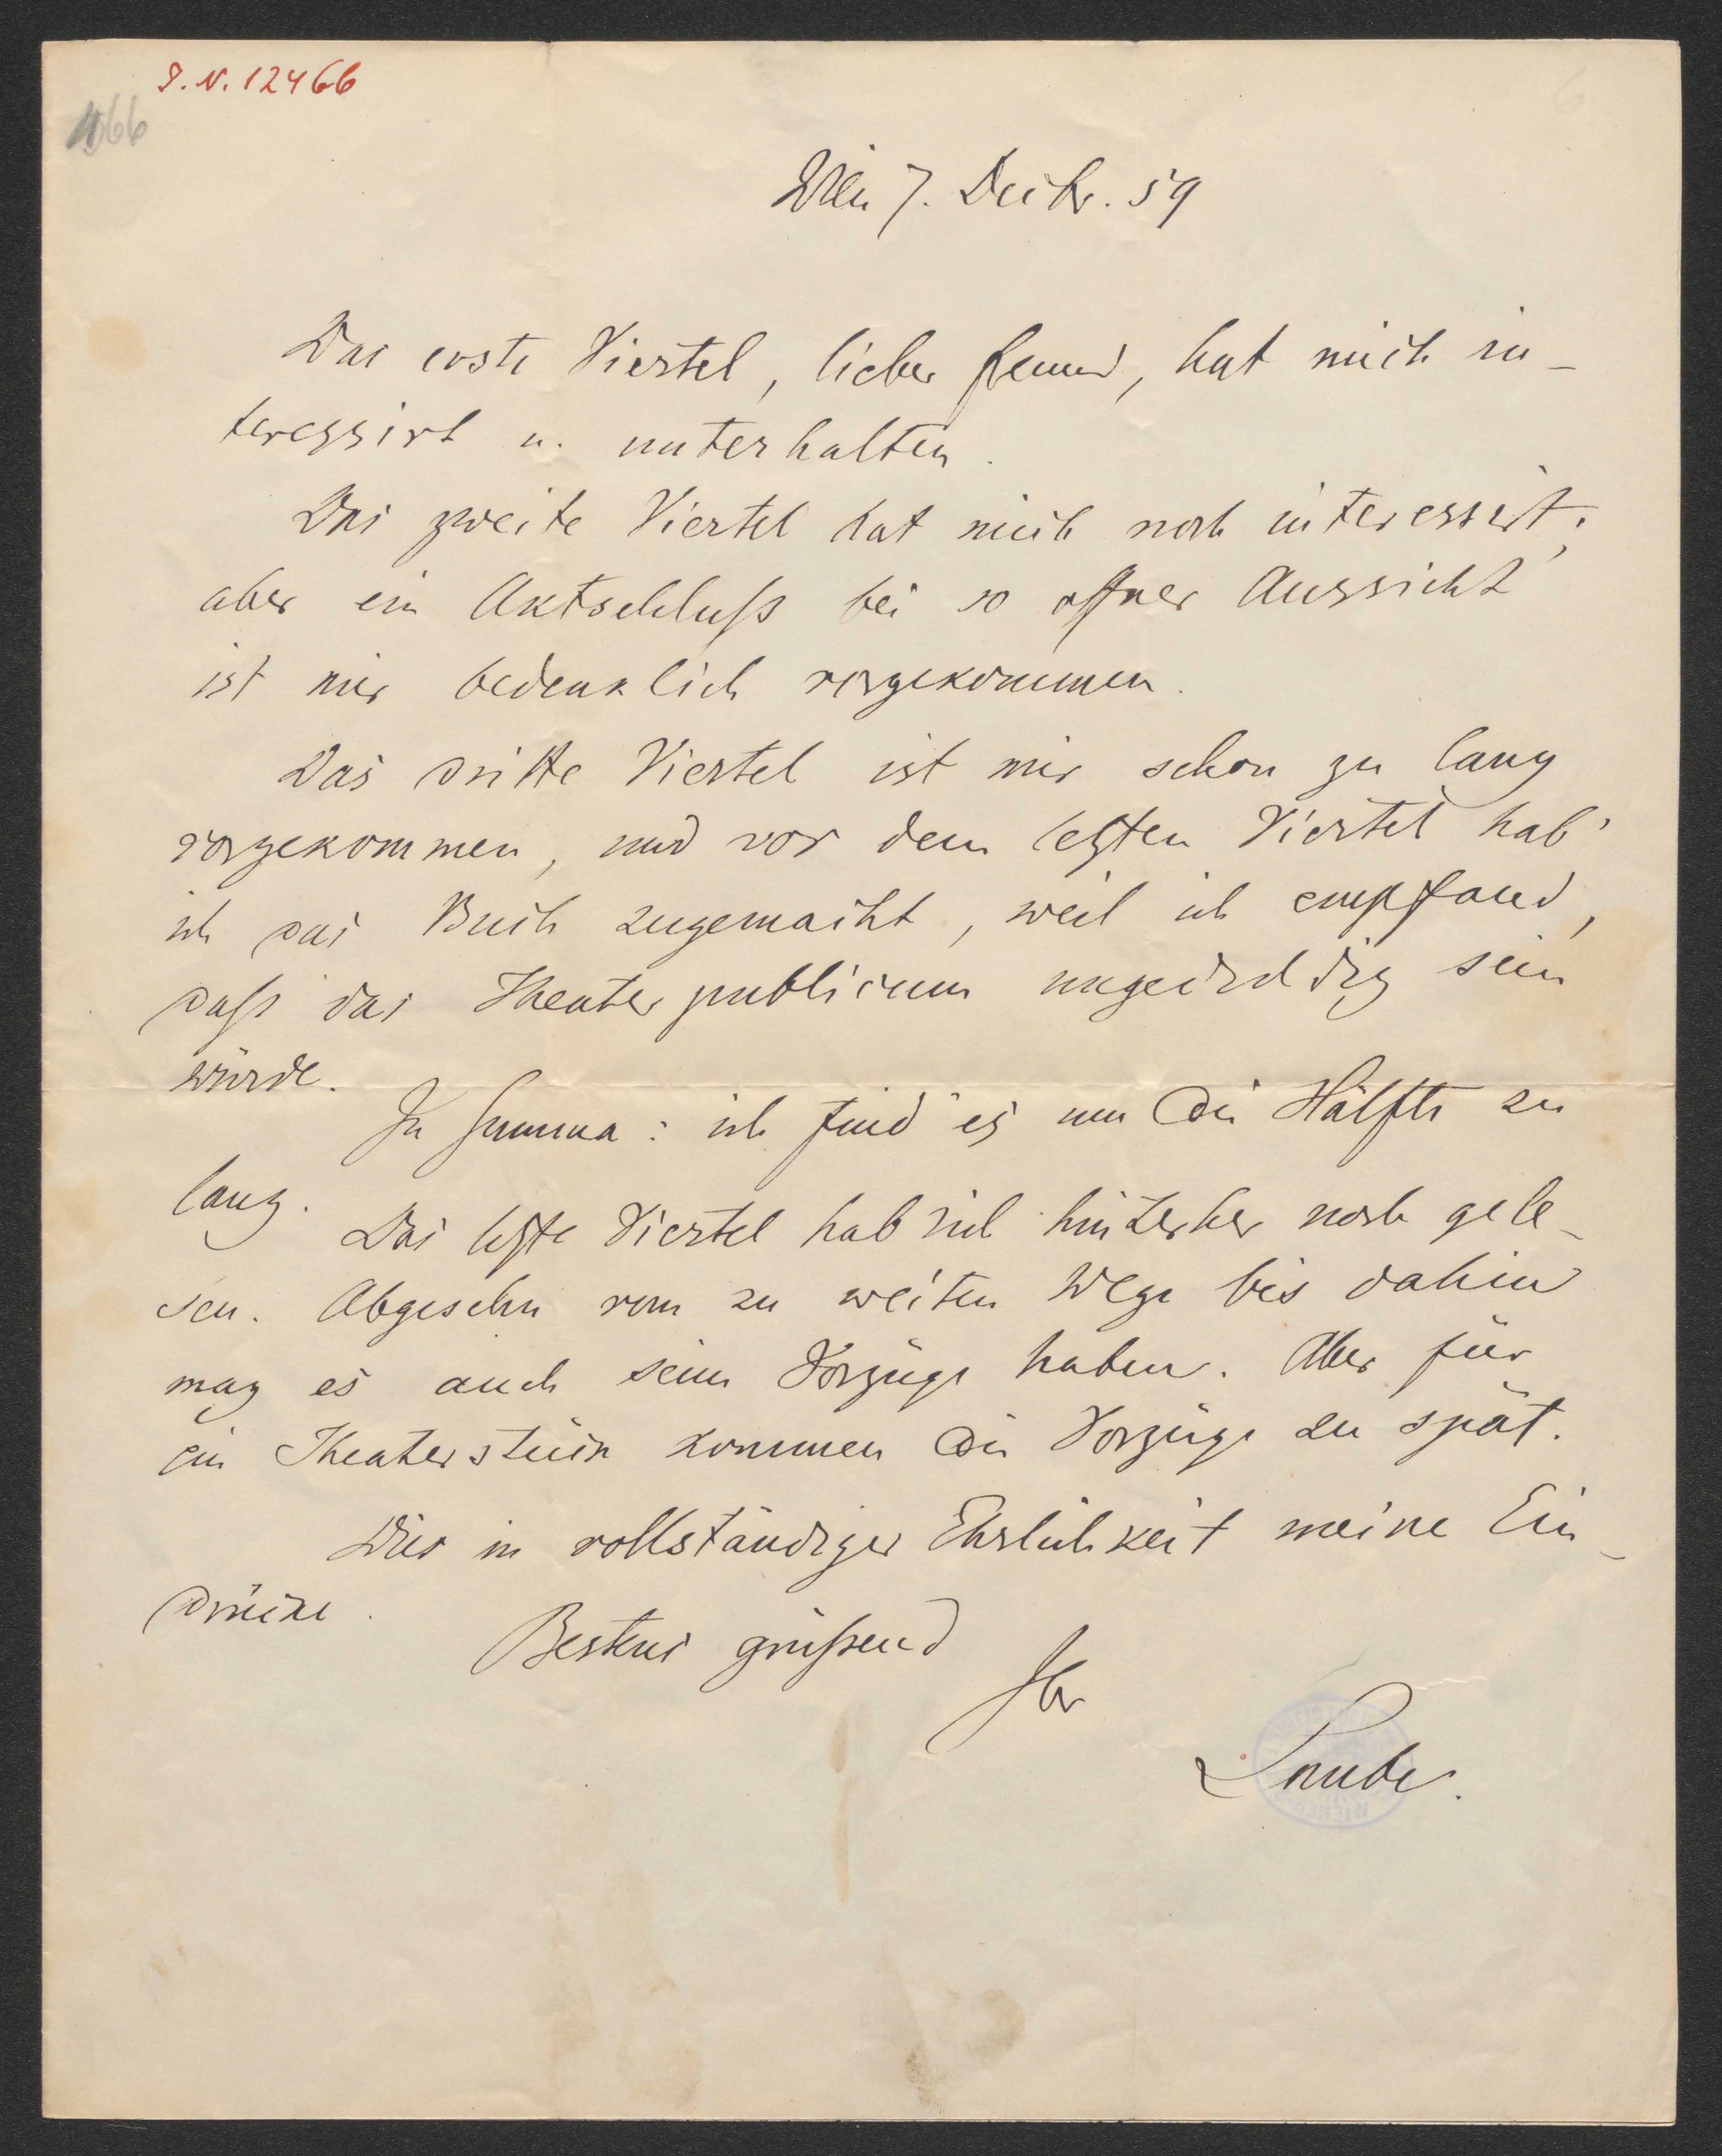 I. N. 12466
166
Wien 7. Decbr. 59
Das erste Viertel, lieber Freund, hat mich in-
teressirt u. unterhalten.
Das zweite Viertel hat mich noch interessirt;
aber ein Aktschluß bei so offner Aussicht
ist mir bedenklich vorgekommen.
Das dritte Viertel ist mir schon zu lang
vorgekommen, und vor dem letzten Viertel hab'
ich das Buch zugemacht, weil ich empfand,
daß das Theaterpublicum ungeduldig sein
würde.
In Summa: ich find' es um die Hälfte zu
lang.
Das letzte Viertel hab ich hinterher noch gele-
sen. Abgesehn vom zu weiten Wege bis dahin
mag es auch seine Vorzüge haben. Aber für
ein Theaterstück kommen die Vorzüge zu spät.
Dies in vollständiger Ehrlichkeit meine Ein-
drücke.
Bestens grüßend
Ihr
Laube.